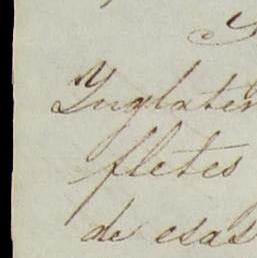 Inglater
fletes
de esas